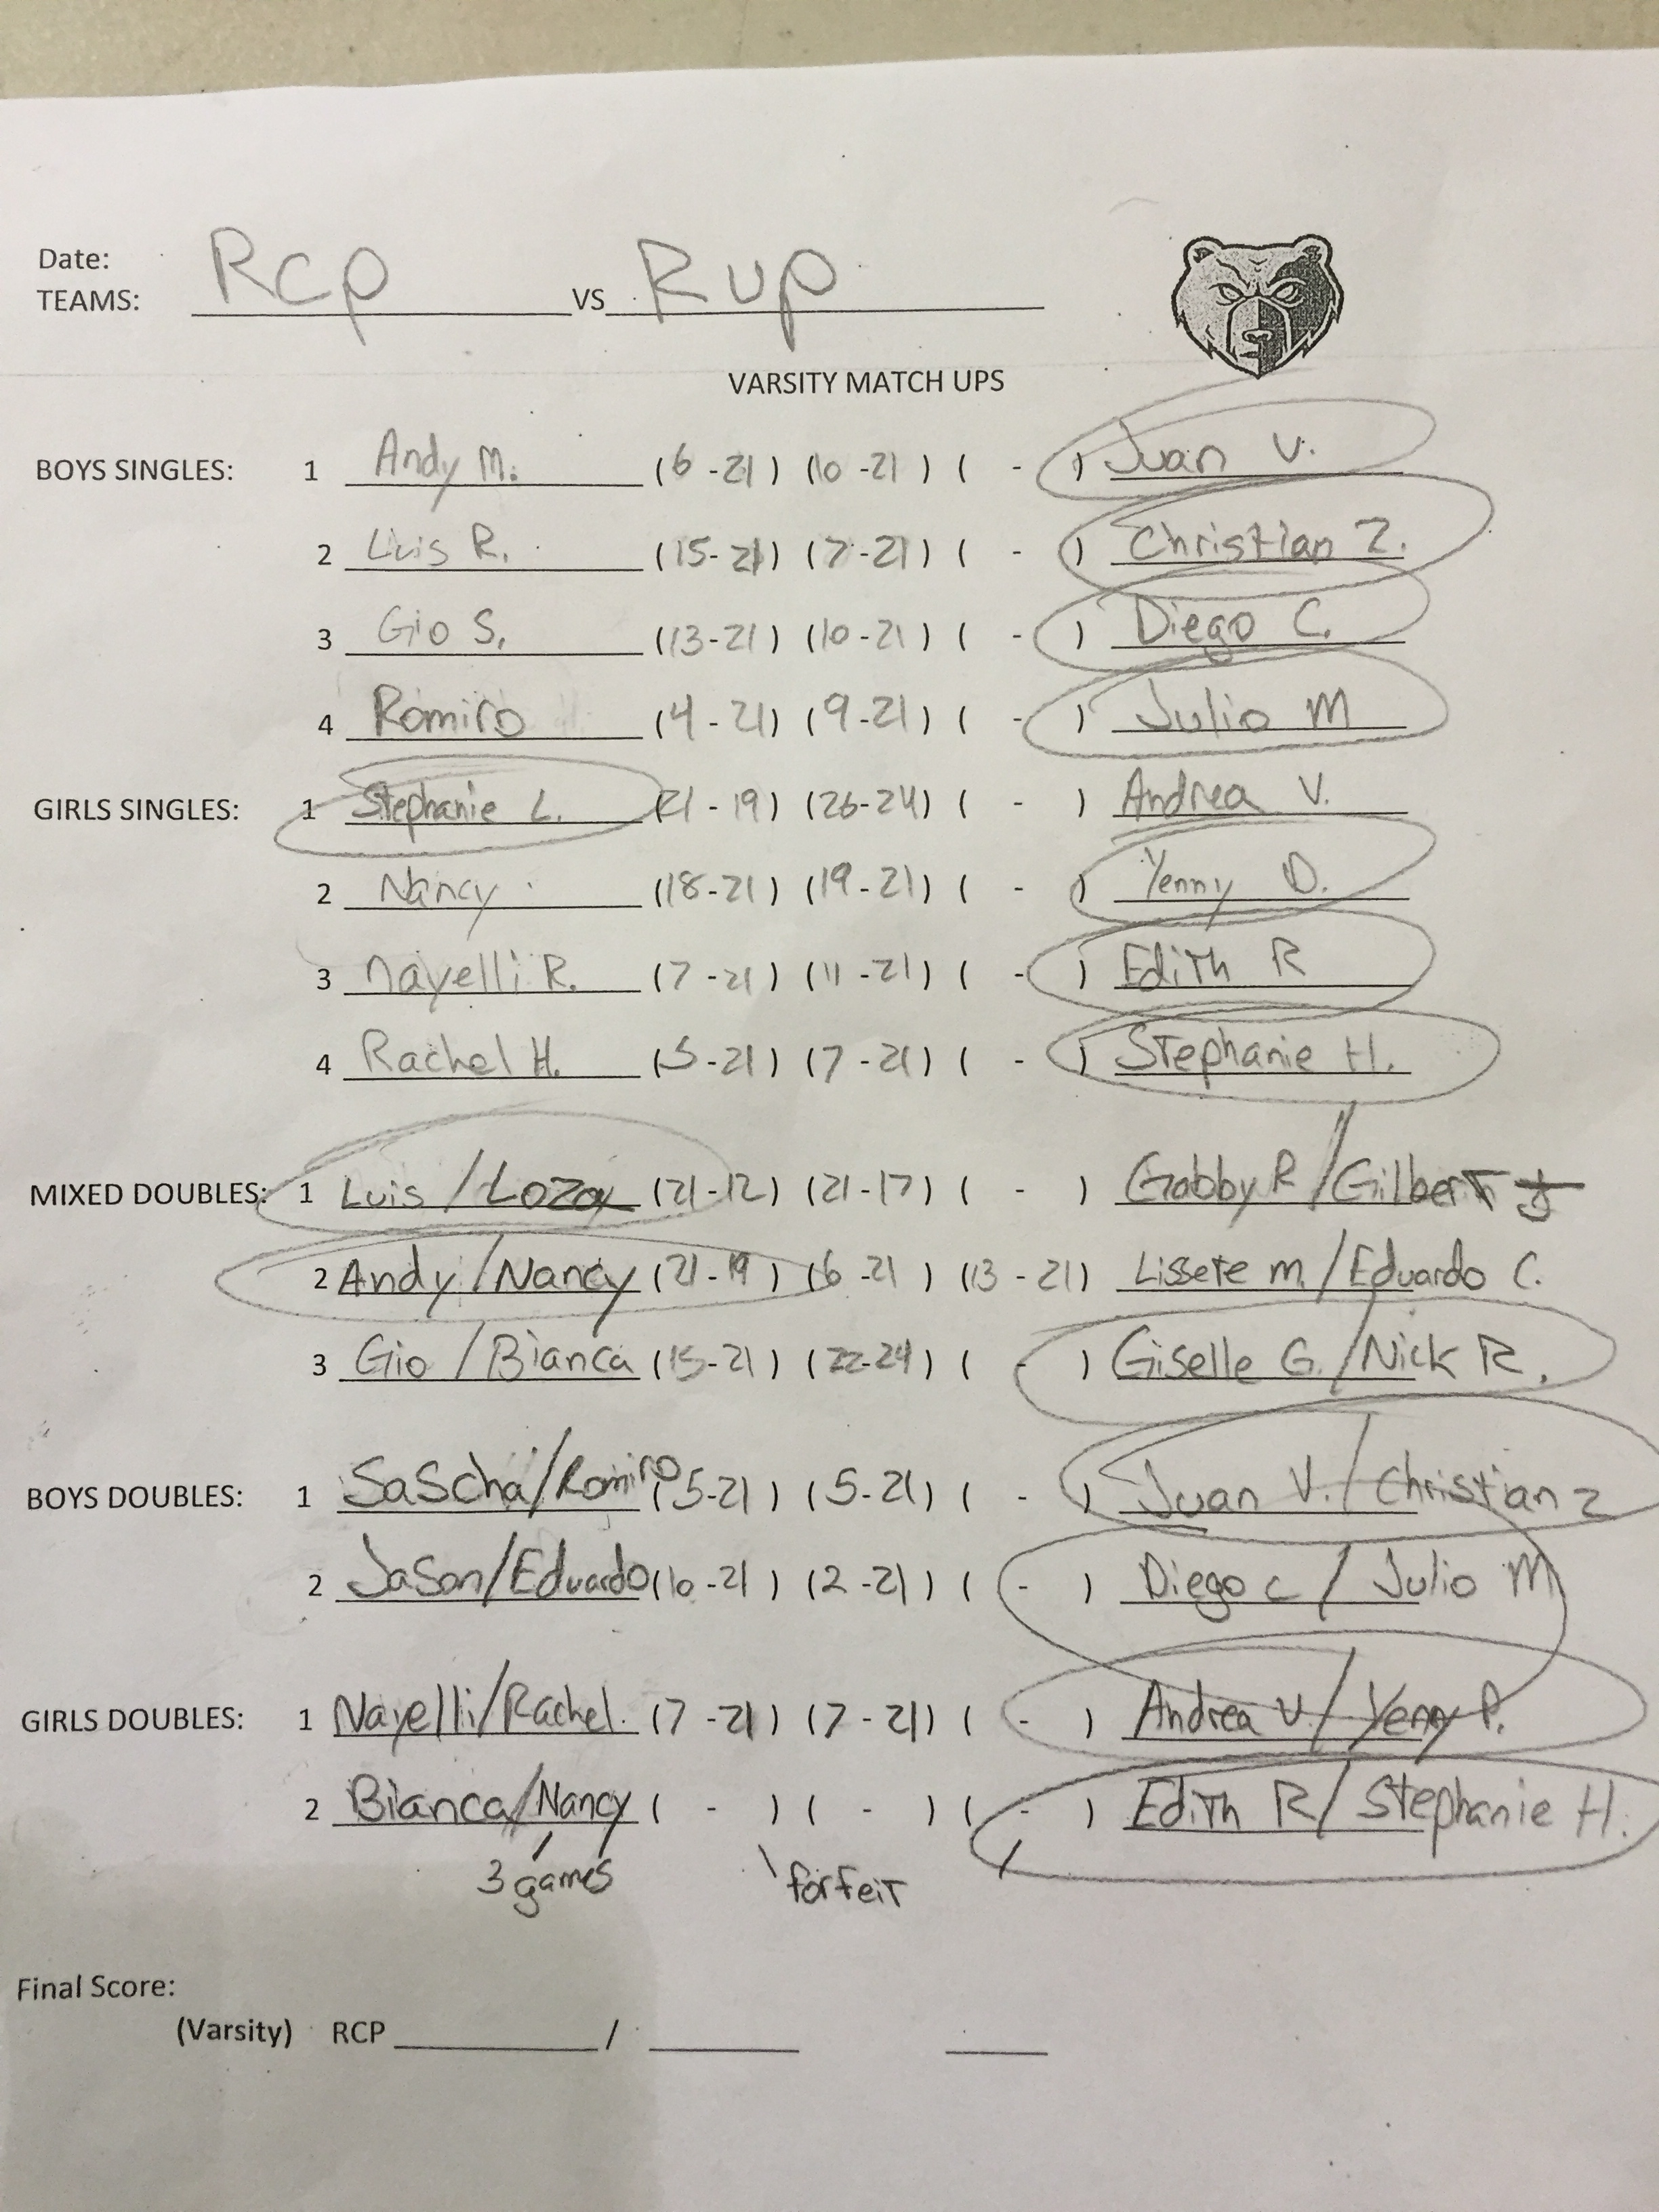 Date:
TEAMS: Rcp VS Rup
VARSITY MATCH UPS
BOYS SINGLES: 1 Andy M. (6-21) (10-21) ( - ) Juan V.
2 Luis R. (15-21) (7-21) ( - ) Christian Z.
3 Gio S. (13-21) (10-21) ( - ) Diego C.
4 Romiro (4-21) (9-21) ( - ) Julio M
GIRLS SINGLES: 1 Stephanie L. (21-19) (26-24) ( - ) Andrea V.
2 Nancy (18-21) (19-21) ( - ) Yenny D.
3 Nayelli R. (7-21) (11-21) ( - ) Edith R
4 Rachel H. (5-21) (7-21) ( - ) Stephanie H.
MIXED DOUBLES: 1 Luis/Loza (21-12) (21-17) ( - ) Gabby R/Gilbert
2 Andy/Nancy (21-19) (6-21) (13-21) Lissete M./Eduardo C.
3 Gio/Bianca (15-21) (22-24) ( - ) Giselle G./Nick R.
BOYS DOUBLES: 1 Sascha/Romiro (5-21) (5-21) ( - ) Juan V./Christian Z
2 Jason/Eduardo (10-21) (2-21) ( - ) Diego C/Julio M
GIRLS DOUBLES: 1 Nayelli/Rachel. (7-21) (7-21) ( - ) Andrea V./Yenny P.
2 Bianca/Nancy ( - ) ( - ) ( - ) Edith R/Stephanie H.
3 games forfeit
Final Score:
(Varsity) RCP ____ / ____ ____